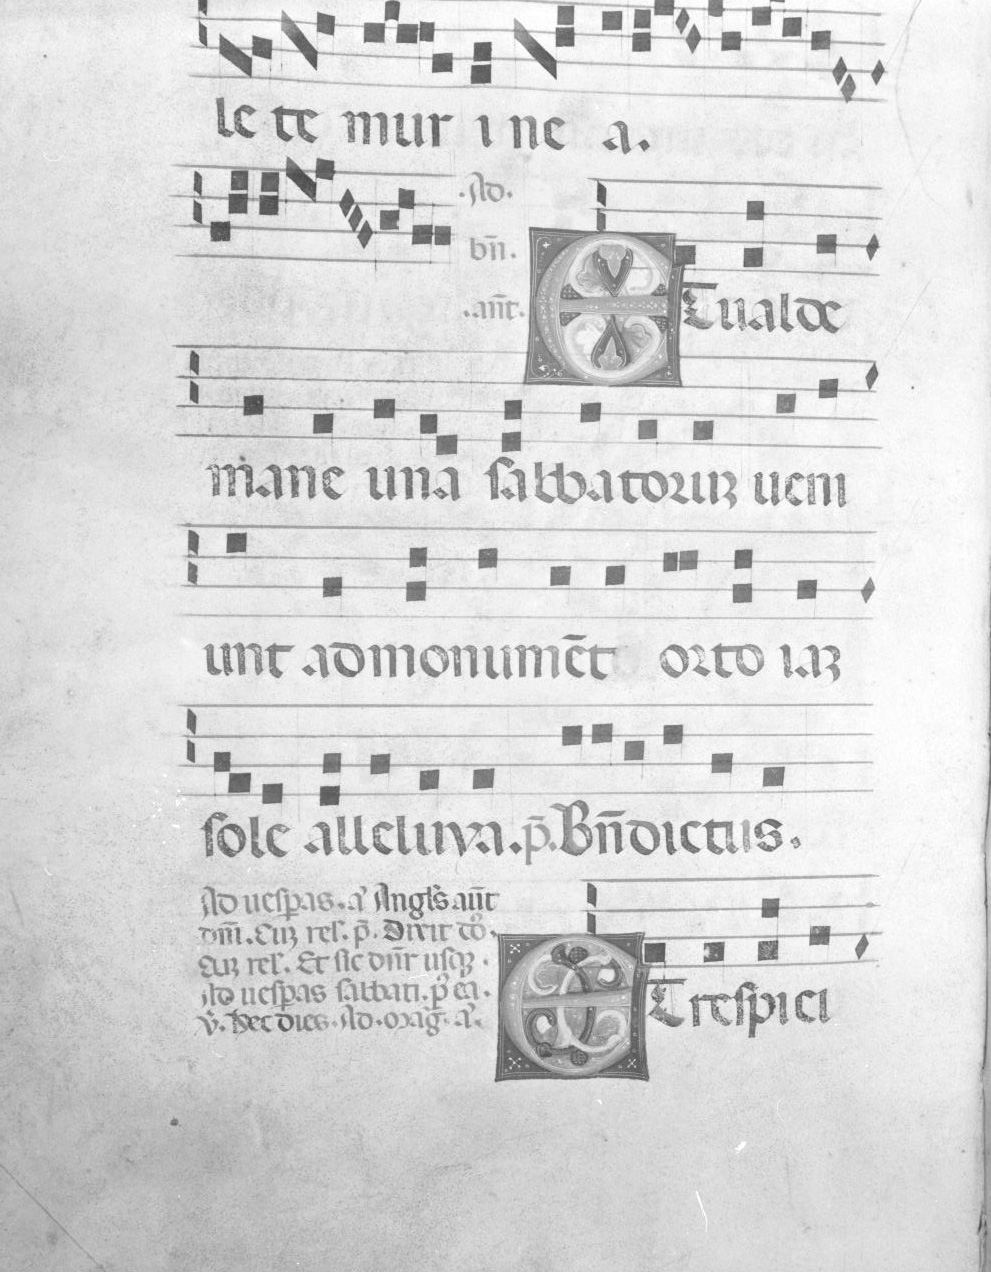 le te mur i ne a.
.Ad.
bn̄.
.an̄t.
ET ualde
mane una sabbatoruꝫ ueni
unt ad monumēt orto iaꝫ
sole alleluya. p̄. Bn̄dictus.
Ad uespas. a Angl's aūt
dn̄i. Cuꝫ rel'. p̄. Dixit
cuꝫ rel'. Et sic dn̄r usqꝫ
ad uespas sabbati. p
v̄. Hec dies. Ad. mag̃. a.
ET respici